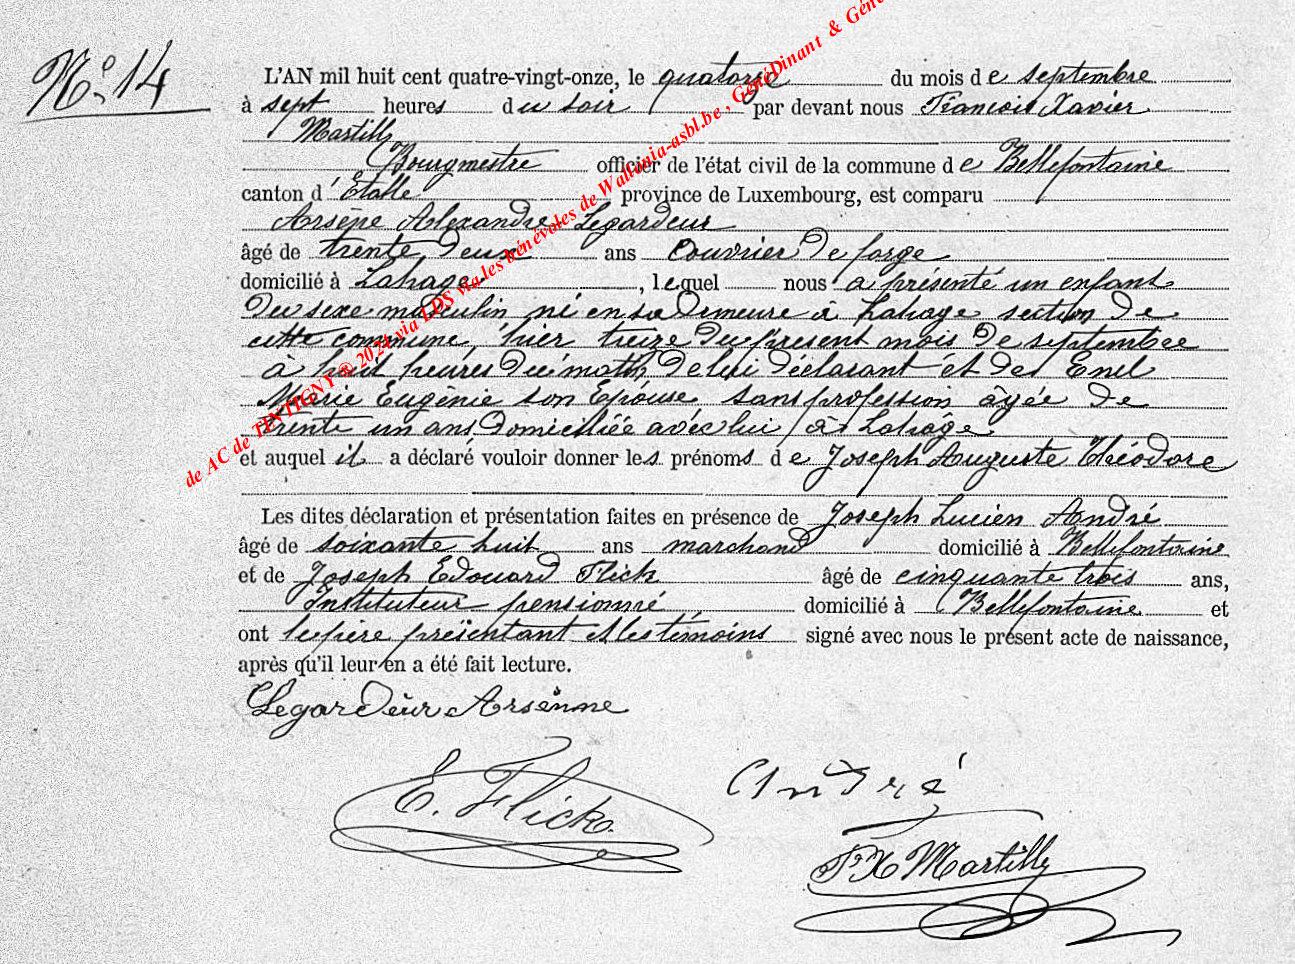 N° 14
L'AN mil huit cent quatre-vingt-onze, le quatorze du mois de septembre
à sept heures du soir par devant nous Francois Xavier
Martilly
Bourgmestre officier de l'état civil de la commune de Bellefontaine
canton d'Etalle province de Luxembourg, est comparu
Arsène Alexandre Legardeur
âgé de trente deux ans ouvrier de forge
domicilié à Lahage, lequel nous a présenté un enfant
du sexe masculin né en sa demeure à Lahage section de
cette commune, hier treize du present mois de septembre
à huit heures du matin, de lui déclarant et de
Marie Eugénie son Epouse sans profession âgée de
trente un ans domiciliée avec lui à Lahage
et auquel il a déclaré vouloir donner les prénoms de Joseph Auguste Théodore
Les dites déclaration et présentation faites en présence de Joseph Lucien André
âgé de soixante huit ans marchand domicilié à Bellefontaine
et de Joseph Edouard Flick âgé de cinquante trois ans,
Instituteur pensionné domicilié à Bellefontaine et
ont le père présentant et les témoins signé avec nous le présent acte de naissance,
après qu'il leur en a été fait lecture.
Legardeur Arsènne
E. Flick
André
F X Martilly
de AC de TINTIGNY ® 2024 via LDS via les bénévoles de Wallonia-asbl.be , GénéDinant & Géné